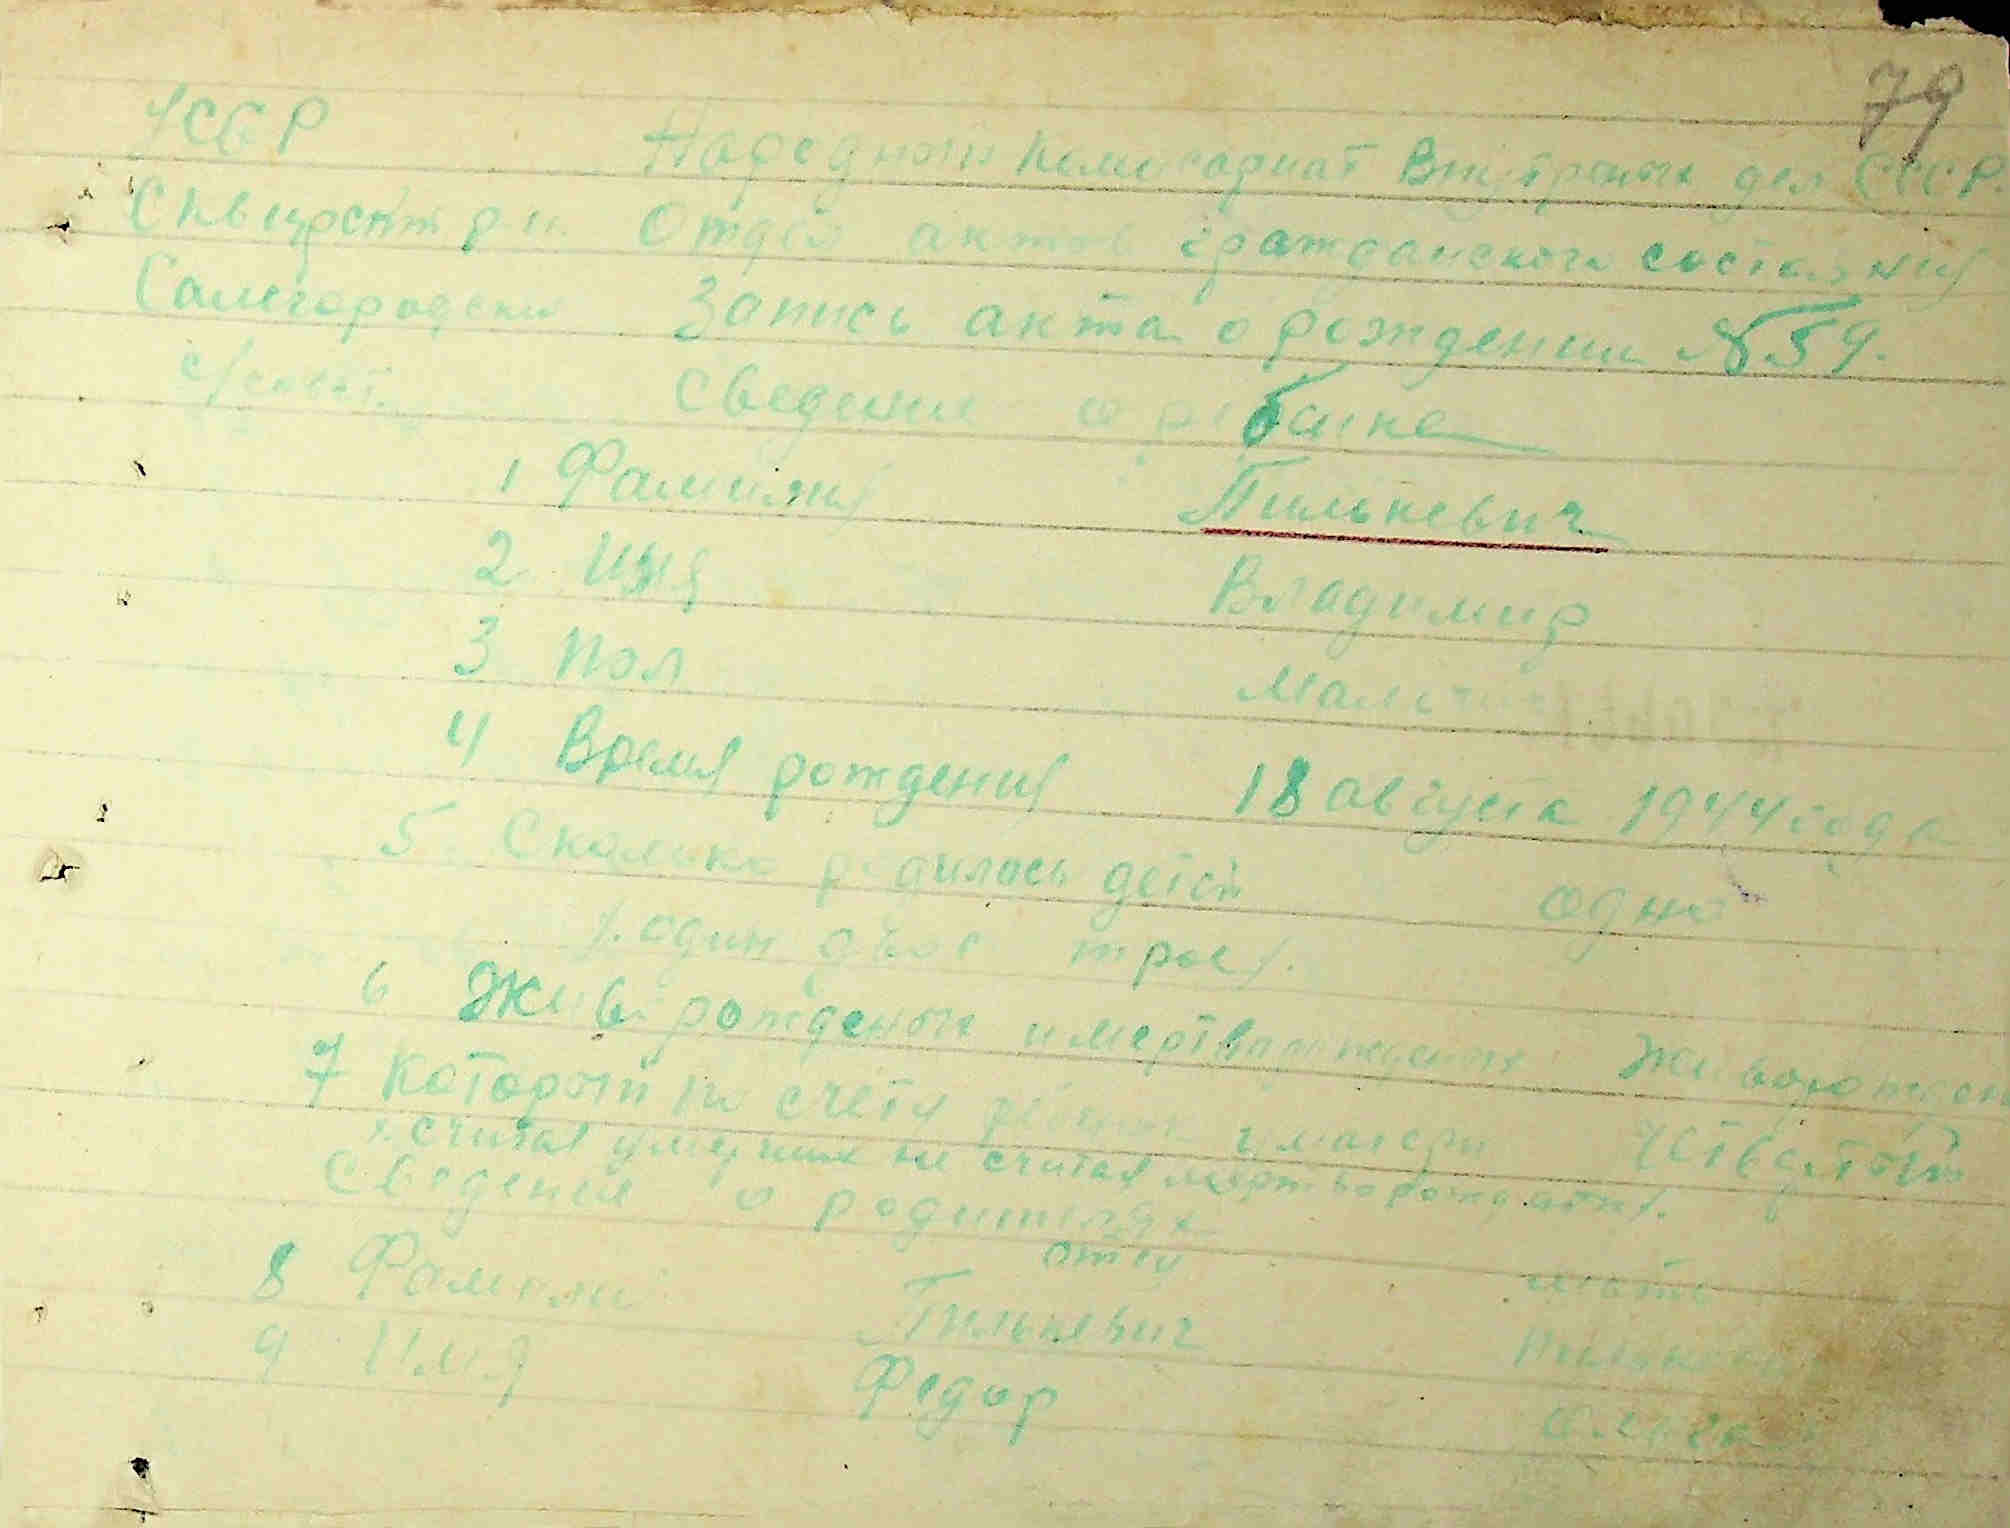 79
УССР Народный Комисариат Внутреных дел СССР.
Сквирский р н. Отдел актов гражданского состаяния
Самгородский Запись акта о рождении №59.
с/совет. Сведение о ребенке
1 Фамилия Пилькевич
2 Имя Владимир
3 Пол Мальчик
4 Время рождения 18 августа 1944 года
5. Сколько родилось детей одно
/. один двое трое/.
6 Живорожденый и мертворожденых Живорожден
7 Который по счету ребенок у матери
/. считая умерших не считая мертворожденых/.
Сведение о родителях
отец мать
8 Фамилия Пилькевич Пилькевич
9 Имя Федор